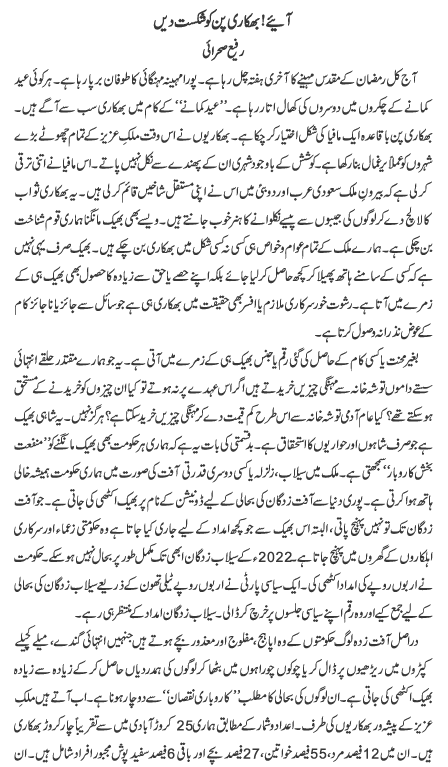 آیئے! بھکاری پن کو شکست دیں
رفیع صحرائی
آج کل رمضان کے مقدس مہینے کا آخری ہفتہ چل رہا ہے۔ پورا مہینہ مہنگائی کا طوفان برپا رہا ہے۔ ہر کوئی عید
کمانے کے چکروں میں دوسروں کی کھال اتارتا رہا ہے۔ ’’عید کمانے‘‘ کے کام میں بھکاری سب سے آگے ہیں۔
بھکاری پن باقاعدہ ایک مافیا کی شکل اختیار کر چکا ہے۔ بھکاریوں نے اس وقت ملکِ عزیز کے تمام چھوٹے بڑے
شہروں کو عملاً یرغمال بنا رکھا ہے۔ کوشش کے باوجود شہری ان کے پھندے سے نکل نہیں پاتے۔ اس مافیا نے اتنی ترقی
کر لی ہے کہ بیرونِ ملک سعودی عرب اور دوبئی میں اس نے اپنی مستقل شاخیں قائم کر لی ہیں۔ یہ بھکاری ثواب
کا لالچ دے کر لوگوں کی جیبوں سے پیسے نکلوانے کا ہنر خوب جانتے ہیں۔ ویسے بھی بھیک مانگنا ہماری قوم شناخت
بن چکی ہے۔ ہمارے ملک کے تمام عوام و خواص ہی کسی نہ کسی شکل میں بھکاری بن چکے ہیں۔ بھیک صرف یہی نہیں
ہے کہ کسی کے سامنے ہاتھ پھیلا کر کچھ حاصل کر لیا جائے بلکہ اپنے حصے یا حق سے زیادہ کا حصول بھی بھیک ہی کے
زمرے میں آتا ہے۔ رشوت خور سرکاری ملازم یا افسر بھی حقیقت میں بھکاری ہی ہے جو سائل سے جائز یا ناجائز کام
کے عوض نذرانہ وصول کرتا ہے۔
بغیر محنت یا کسی کام کے حاصل کی گئی رقم یا جنس بھیک ہی کے زمرے میں آتی ہے۔ یہ جو ہمارے مقتدر حلقے انتہائی
سستے داموں توشہ خانہ سے مہنگی چیزیں خریدتے ہیں اگر اس عہدے پر نہ ہوتے تو کیا ان چیزوں کو خریدنے کے مستحق
ہو سکتے تھے؟ کیا عام آدمی توشہ خانہ سے اس طرح کم قیمت دے کر مہنگی چیزیں خرید سکتا ہے؟ ہرگز نہیں۔ یہ شاہی بھیک
ہے جو صرف شاہوں اور حواریوں کا استحقاق ہے۔ بدقسمتی کی بات یہ ہے کہ ہماری ہر حکومت بھی بھیک مانگنے کو ’’منفعت
بخش کاروبار‘‘ سمجھتی ہے۔ ملک میں سیلاب، زلزلہ یا کسی دوسری قدرتی آفت کی صورت میں ہماری حکومت ہمیشہ خالی
ہاتھ ہوا کرتی ہے۔ پوری دنیا سے آفت زدگان کی بحالی کے لیے ڈونیشن کے نام پر بھیک اکٹھی کی جاتی ہے۔ جو آفت
زدگان تک تو نہیں پہنچ پاتی، البتہ اس بھیک سے جو کچھ امداد کے لیے جاری کیا جاتا ہے وہ حکومتی زعماء اور سرکاری
اہلکاروں کے گھروں میں پہنچ جاتا ہے۔ 2022ء کے سیلاب زدگان ابھی تک مکمل طور پر بحال نہیں ہو سکے۔ حکومت
نے اربوں روپے کی امداد اکٹھی کی۔ ایک سیاسی پارٹی نے اربوں روپے ٹیلی تھون کے ذریعے سیلاب زدگان کی بحالی
کے لیے جمع کیے اور وہ رقم اپنے سیاسی جلسوں پر خرچ کر ڈالی۔ سیلاب زدگان امداد کے منتظر ہی رہے۔
دراصل آفت زدہ لوگ حکومتوں کے وہ اپاہج، مفلوج اور معذور بچے ہوتے ہیں جنہیں انتہائی گندے، میلے کچیلے
کپڑوں میں ریڑھیوں پر ڈال کر یا چوکوں چوراہوں میں بٹھا کر لوگوں کی ہمدردیاں حاصل کر کے زیادہ سے زیادہ
بھیک اکٹھی کی جاتی ہے۔ ان لوگوں کی بحالی کا مطلب ’’کاروباری نقصان‘‘ سے دوچار ہونا ہے۔ اب آتے ہیں ملکِ
عزیز کے پیشہ ور بھکاریوں کی طرف۔ اعداد و شمار کے مطابق ہماری 25 کروڑ آبادی میں سے تقریباً چار کروڑ بھکاری
ہیں۔ ان میں 12 فیصد مرد، 55 فیصد خواتین، 27 فیصد بچے اور باقی 6 فیصد سفید پوش مجبور افراد شامل ہیں۔ ان